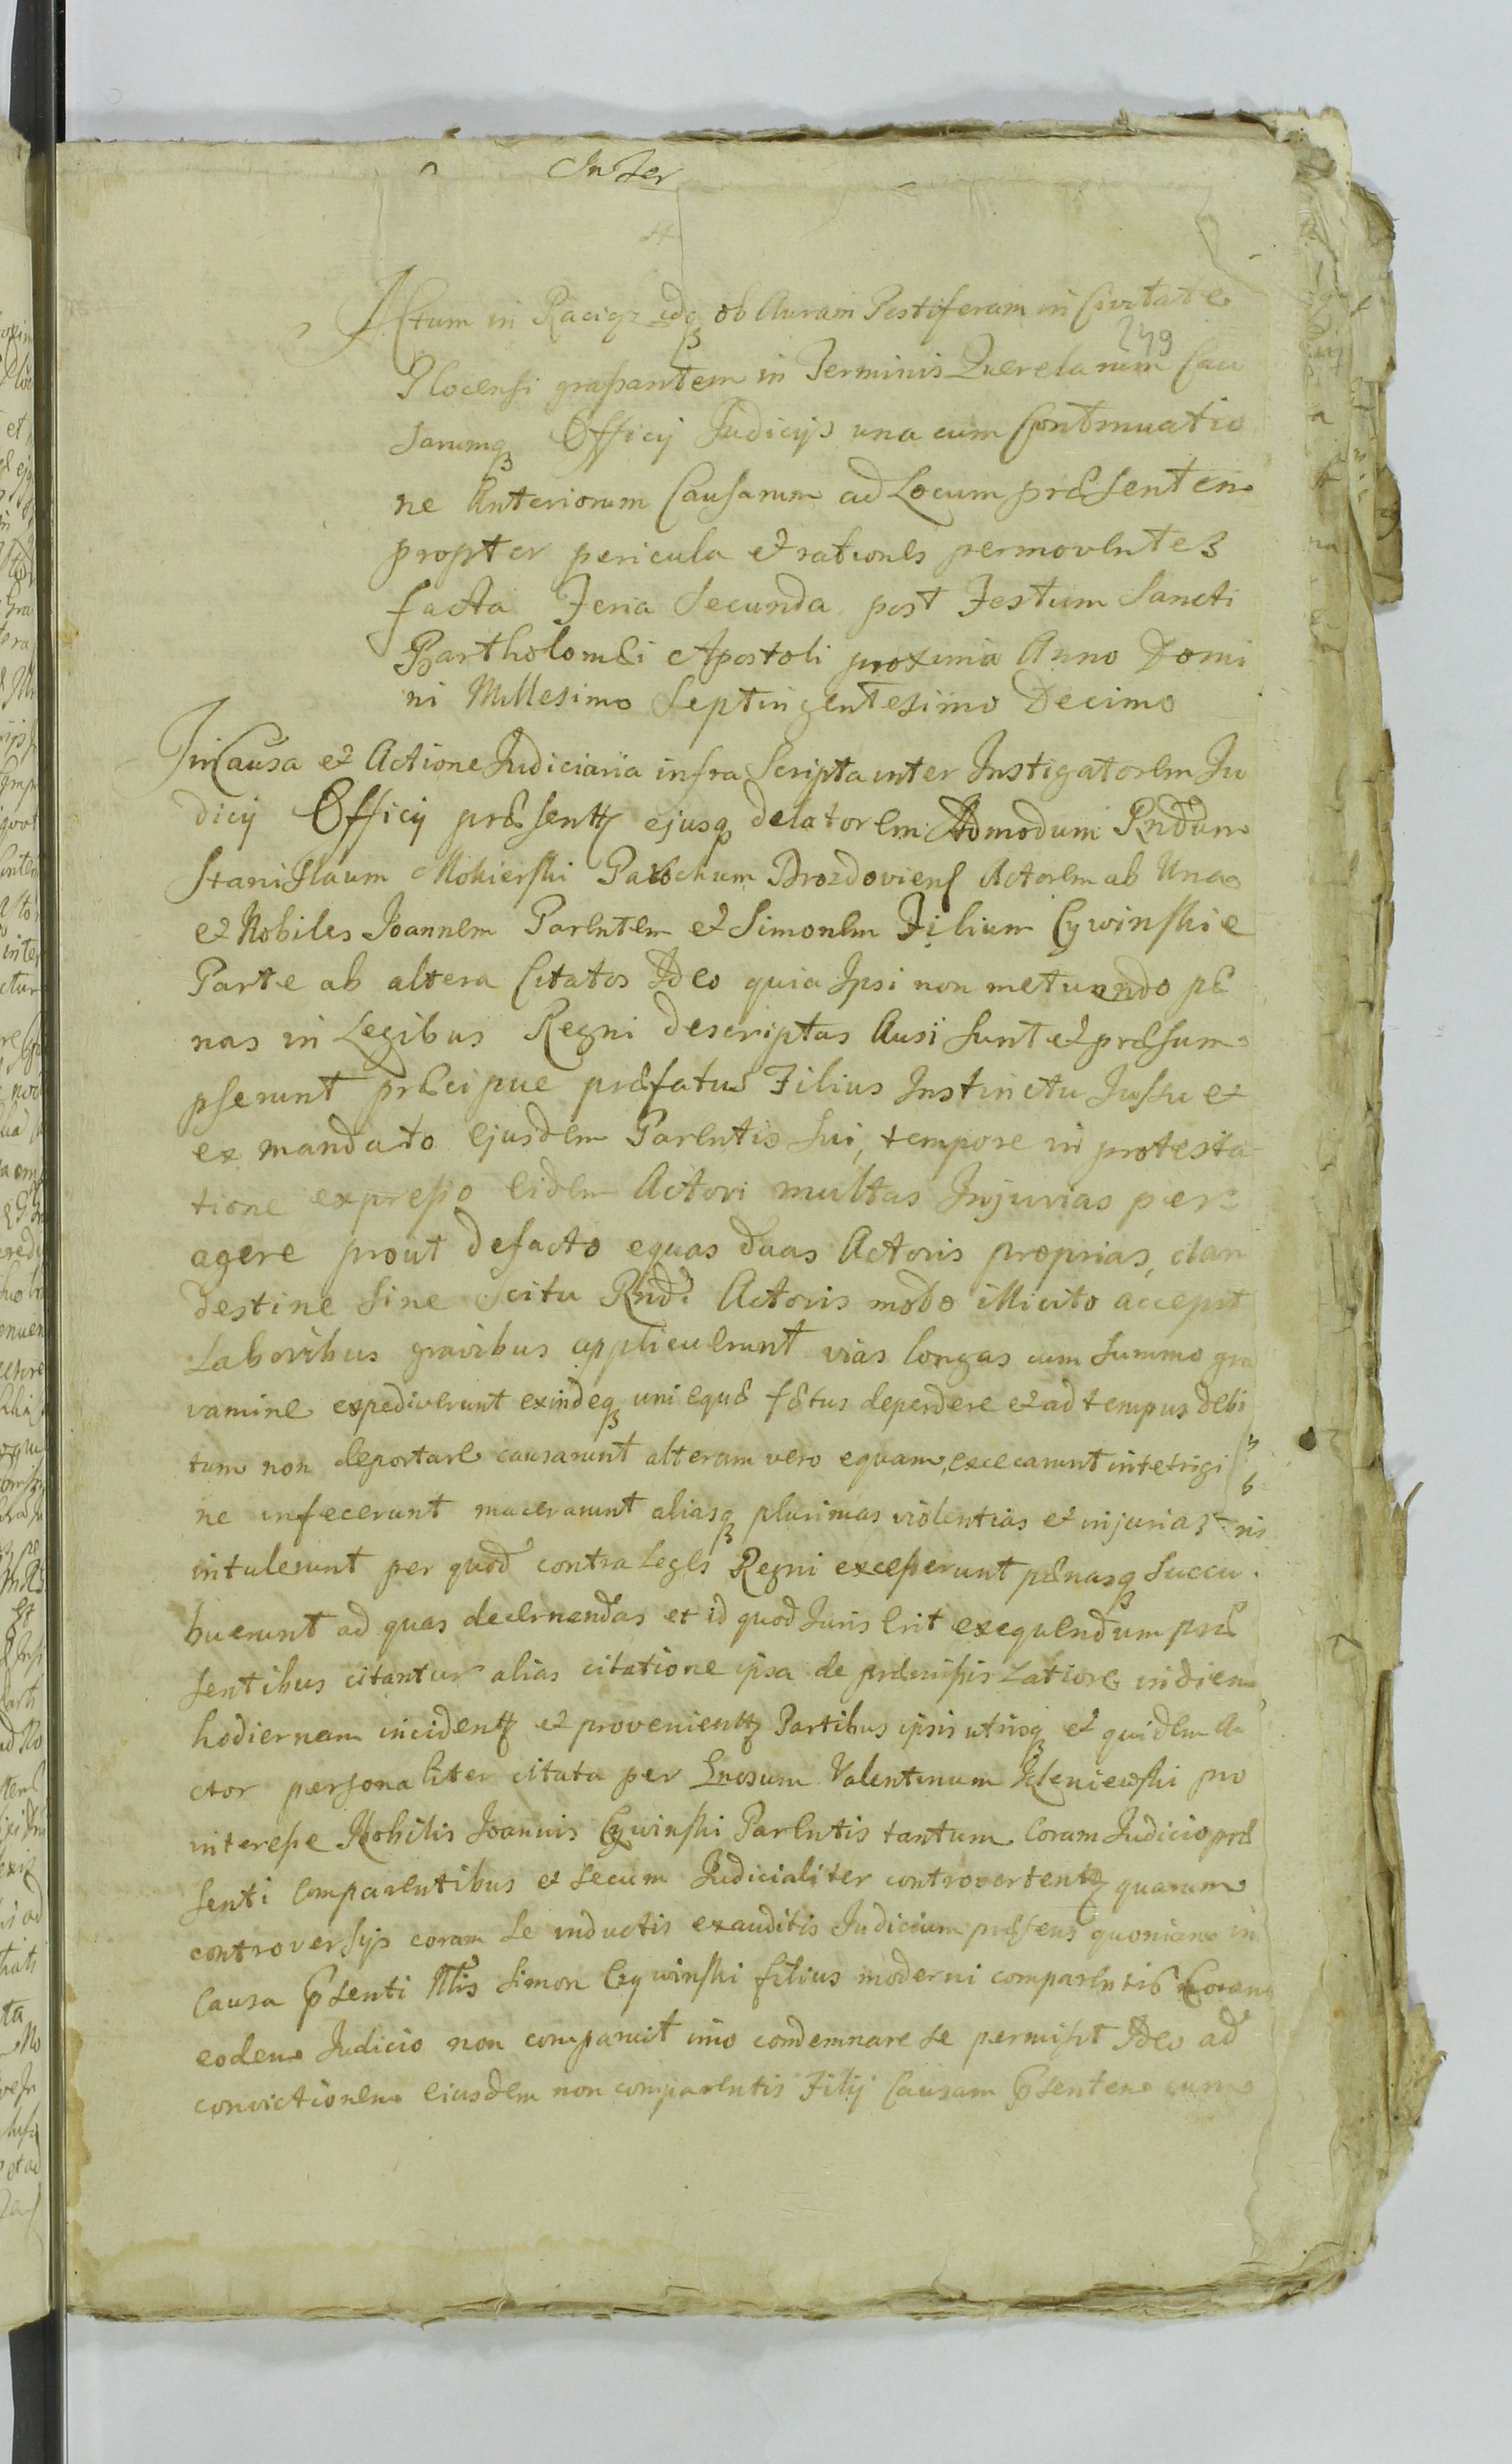 Inter
Actum in Raciąz idq ob Auram Pestiferam in Civitate
249
Plocensi grassantem in Terminis Querelarum Cau
sarumq Officij Judicijs una cum Continuatio
ne Anteriorum Causarum ad Locum præsentem
propter pericula et rationes permoventes
facta Feria Secunda post Festum Sancti
Bartholomæi Apostoli proxima Anno Domi
ni Millesimo Septingentesimo Decimo
In Causa et Actione Judiciaria infra Scripta inter Instigatorem Ju
dicij Officij præsentt ejusq delatorem Admodum Rndum
Stanislaum Mokierski Parochum Drozdoviens Actorem ab Una
et Nobiles Joannem Parentem et Simonem Filium Cywinskie
Parte ab altera Citatos Ideo quia Ipsi non metuendo pæ
nas in Legibus Regni descriptas Ausi sunt et præsum
pserunt præcipue præfatus Filius Instinctu Jussu et
ex mandato ejusdem Parentis sui, tempore in protesta
tione expresso eidem Actori multas Injurias per
agere prout defacto equas duas Actoris proprias, clan
destine sine scitu Rndi Actoris modo illicito accepit
Laboribus gravibus applicuerunt vias longas cum summo gra
vamine expediverunt exindeq uni equæ fætus deperdere et ad tempus debi
tum non deportare causarunt alteram vero equam, excecarunt intetrigi
ne infecerunt macerarunt aliasq plurimas violentias et injurias
intulerunt per quod contra Leges Regni exceperunt pænasq succu
buerunt ad quas decernendas et id quod Juris erit exequendum præ
sentibus citantur alias citatione ipsa de præmissis Latiore in diem
hodiernam incidentt et provenientt Partibus ipsis utrisq et quidem A
ctor personaliter citata per Gnosum Valentinum Kleniewski pro
interesse Nobilis Joannis Cywinski Parentis tantum Coram Judicio præ
senti Comparentibus et secum Judicialiter controvertentt quarum
controversijs coram se inductis exauditis Judicium præsens quoniam in
Causa psenti Nlis Simon Cywinski filius moderni comparentis Coram
eodem Judicio non comparuit imo condemnare se permisit Ideo ad
convictionem eiusdem non comparentis Filij Causam psentem cum